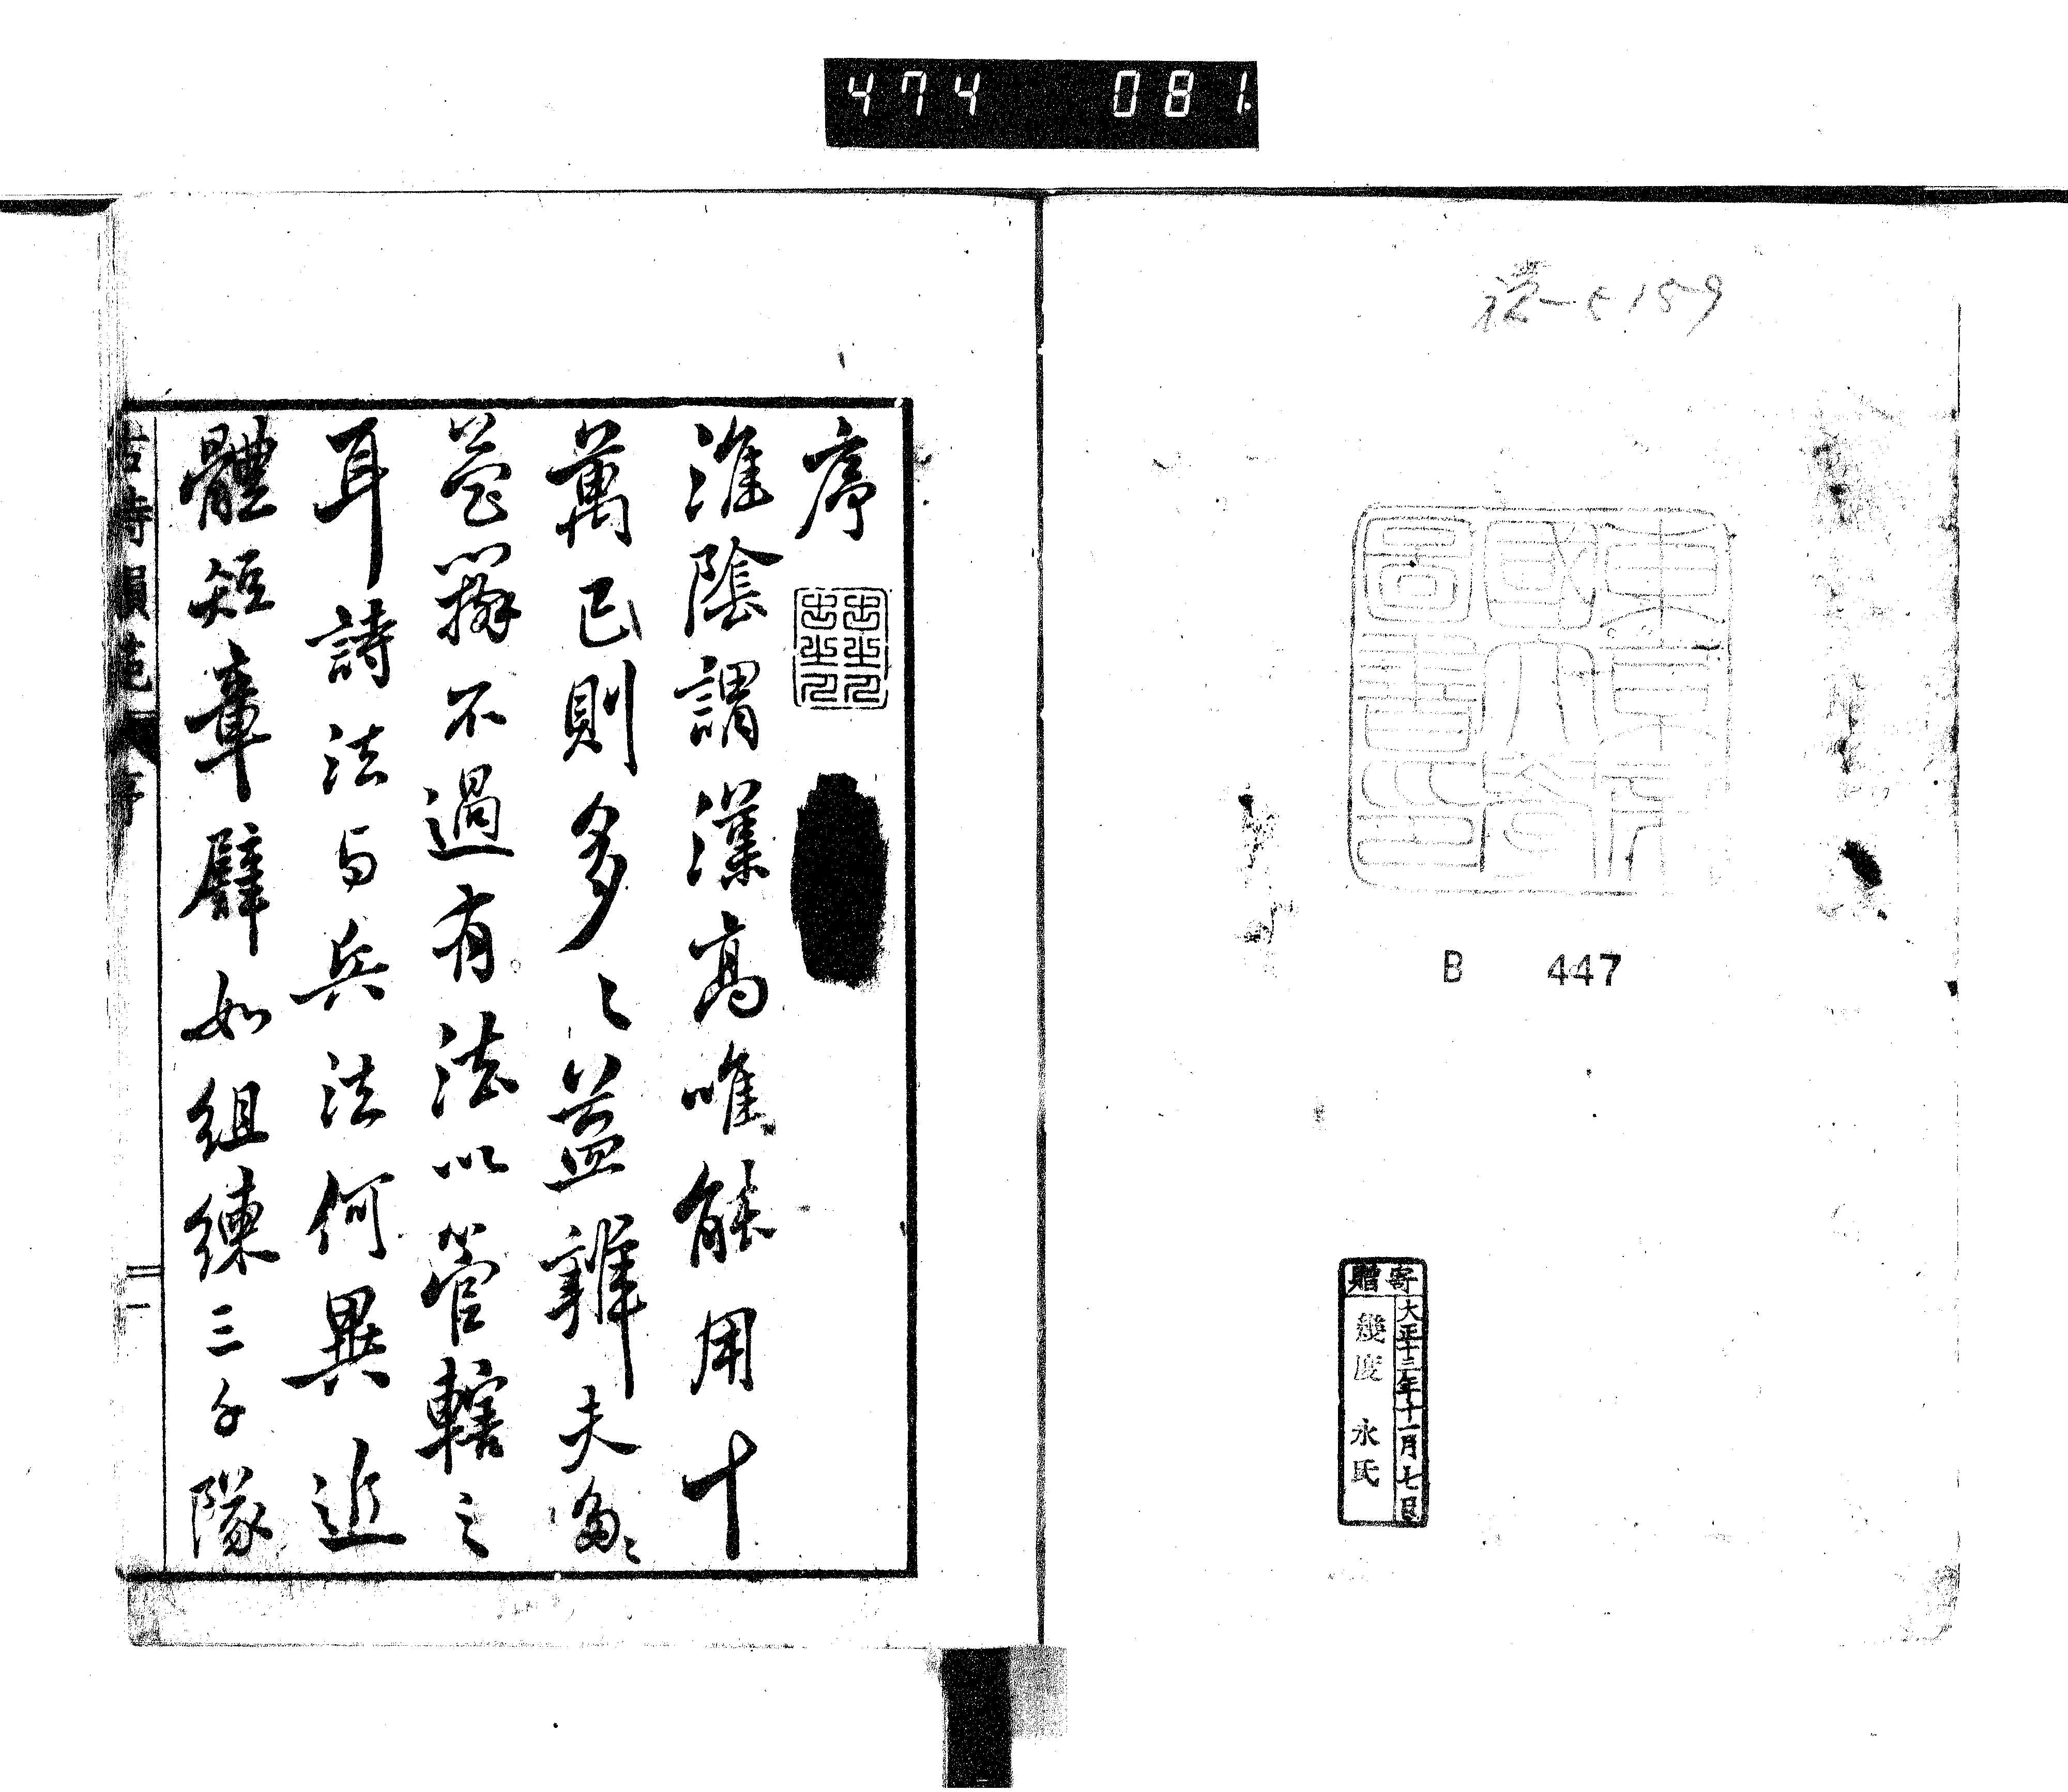 474 081
159
東京
帝國大學
圖書印
B 447
寄贈
大正十三年十一月七日
幾度 永氏
序
淮陰謂漢高唯能用十
萬已則多〻益辦夫多〻
益辦不過有法以管轄之
耳詩法与兵法何異近
體短章譬如組練三千隊
古詩韻範 序 一